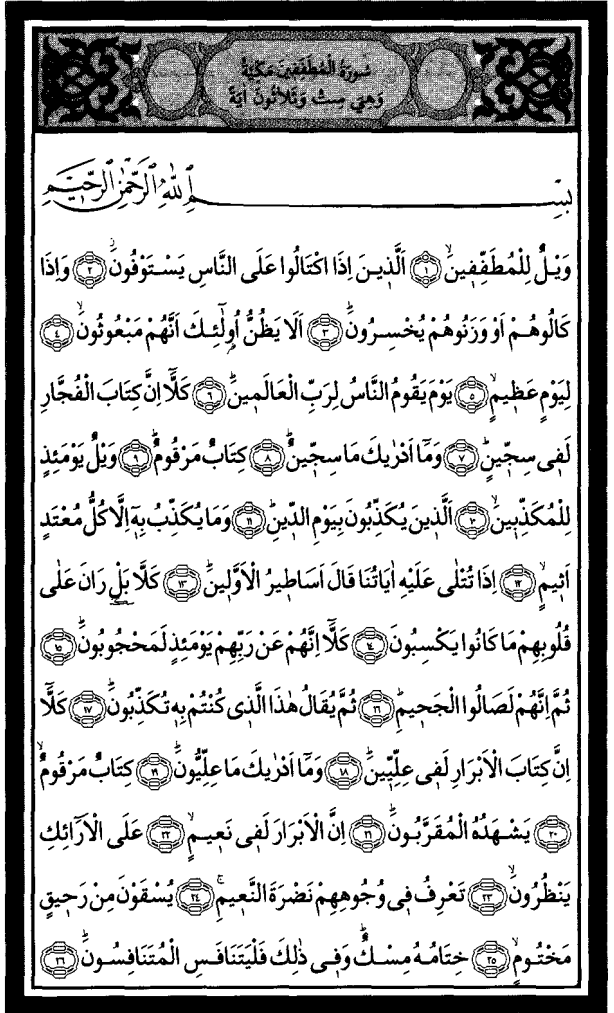 سُورَةُ الْمُطَفِّفِينَ مَكِّيَّةٌ
وَهِيَ سِتٌّ وَثَلَاثُونَ اٰيَةً
بِسْمِ اللّٰهِ الرَّحْمٰنِ الرَّحِيمِ
وَيْلٌ لِلْمُطَفِّف۪ينَۙ ﴿١﴾ اَلَّذ۪ينَ اِذَا اكْتَالُوا عَلَى النَّاسِ يَسْتَوْفُونَۘ ﴿٢﴾ وَاِذَا
كَالُوهُمْ اَوْ وَزَنُوهُمْ يُخْسِرُونَۜ ﴿٣﴾ اَلَا يَظُنُّ اُو۬لٰٓئِكَ اَنَّهُمْ مَبْعُوثُونَۙ ﴿٤﴾
لِيَوْمٍ عَظ۪يمٍۙ ﴿٥﴾ يَوْمَ يَقُومُ النَّاسُ لِرَبِّ الْعَالَم۪ينَۜ ﴿٦﴾ كَلَّٓا اِنَّ كِتَابَ الْفُجَّارِ
لَف۪ي سِجّ۪ينٍۜ ﴿٧﴾ وَمَٓا اَدْرٰيكَ مَا سِجّ۪ينٌۜ ﴿٨﴾ كِتَابٌ مَرْقُومٌۜ ﴿٩﴾ وَيْلٌ يَوْمَئِذٍ
لِلْمُكَذِّب۪ينَۙ ﴿١٠﴾ اَلَّذ۪ينَ يُكَذِّبُونَ بِيَوْمِ الدّ۪ينِۜ ﴿١١﴾ وَمَا يُكَذِّبُ بِه۪ٓ اِلَّا كُلُّ مُعْتَدٍ
اَث۪يمٍۙ ﴿١٢﴾ اِذَا تُتْلٰى عَلَيْهِ اٰيَاتُنَا قَالَ اَسَاط۪يرُ الْاَوَّل۪ينَۜ ﴿١٣﴾ كَلَّا بَلْ۔ رَانَ عَلٰى
قُلُوبِهِمْ مَا كَانُوا يَكْسِبُونَ ﴿١٤﴾ كَلَّٓا اِنَّهُمْ عَنْ رَبِّهِمْ يَوْمَئِذٍ لَمَحْجُوبُونَۜ ﴿١٥﴾
ثُمَّ اِنَّهُمْ لَصَالُوا الْجَح۪يمِۜ ﴿١٦﴾ ثُمَّ يُقَالُ هٰذَا الَّذ۪ي كُنْتُمْ بِه۪ تُكَذِّبُونَۜ ﴿١٧﴾ كَلَّٓا
اِنَّ كِتَابَ الْاَبْرَارِ لَف۪ي عِلِّيّ۪ينَۜ ﴿١٨﴾ وَمَٓا اَدْرٰيكَ مَا عِلِّيُّونَۜ ﴿١٩﴾ كِتَابٌ مَرْقُومٌۙ
﴿٢٠﴾ يَشْهَدُهُ الْمُقَرَّبُونَۜ ﴿٢١﴾ اِنَّ الْاَبْرَارَ لَف۪ي نَع۪يمٍۙ ﴿٢٢﴾ عَلَى الْاَرَٓائِكِ
يَنْظُرُونَۙ ﴿٢٣﴾ تَعْرِفُ ف۪ي وُجُوهِهِمْ نَضْرَةَ النَّع۪يمِۚ ﴿٢٤﴾ يُسْقَوْنَ مِنْ رَح۪يقٍ
مَخْتُومٍۙ ﴿٢٥﴾ خِتَامُهُ مِسْكٌۜ وَف۪ي ذٰلِكَ فَلْيَتَنَافَسِ الْمُتَنَافِسُونَۜ ﴿٢٦﴾